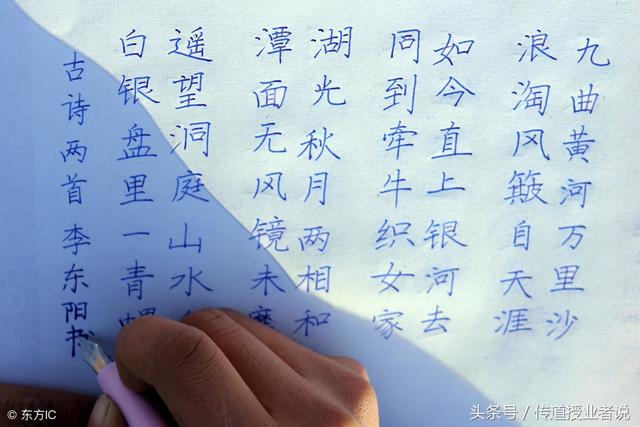 九曲黄河万里沙
浪淘风簸自天涯
如今直上银河去
同到牵牛织女家
湖光秋月两相和
潭面无风镜未磨
遥望洞庭山水
白银盘里一青螺
古诗两首李东阳书
© 东方IC
头条号 / 传道授业者说